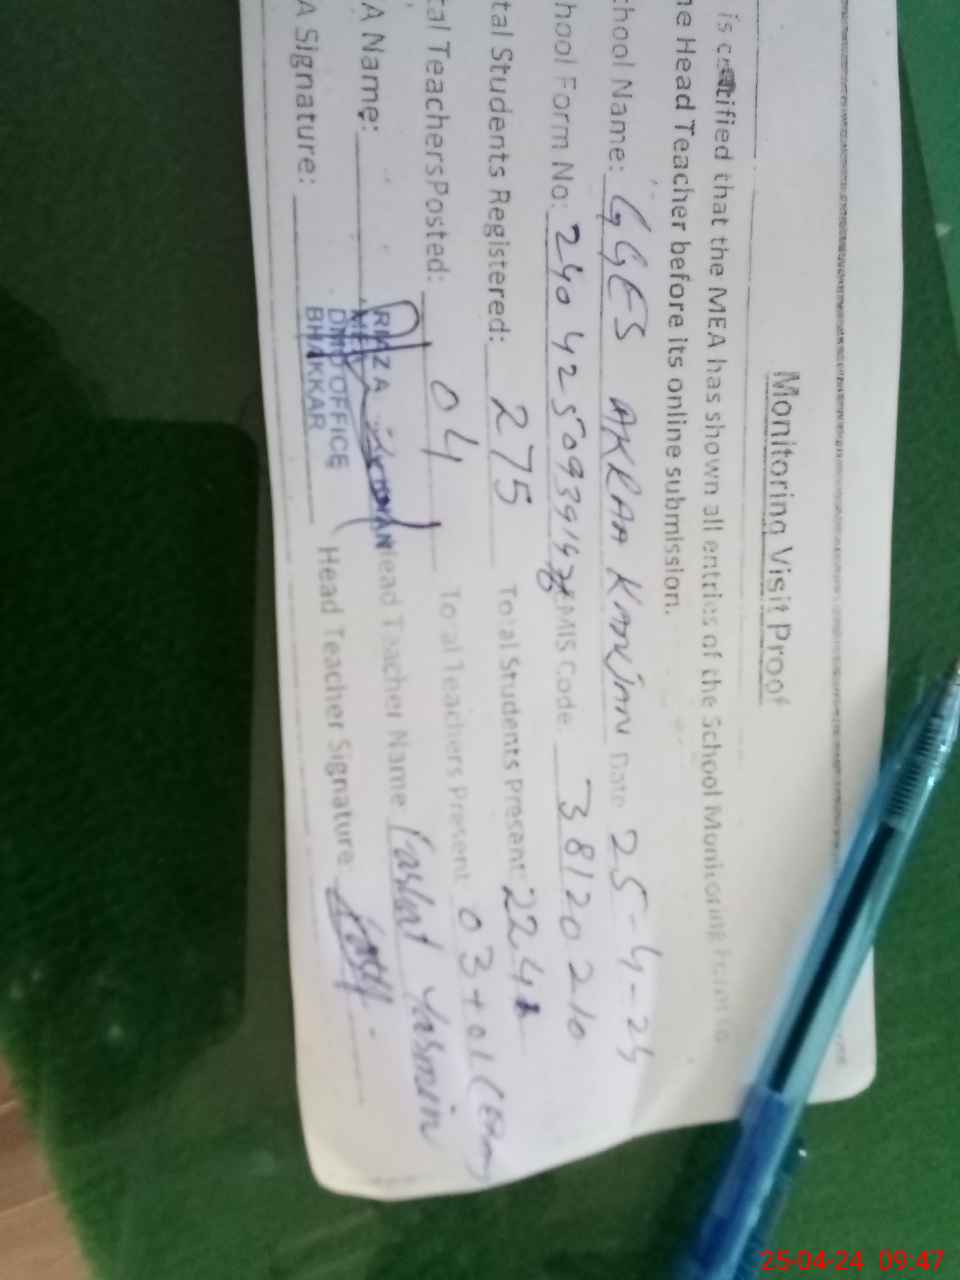 Monitoring Visit Proof
is certified that the MEA has shown all entries of the School Monitoring
he Head Teacher before its online submission.
chool Name: GGES AKRAM Date 25-4-24
hool Form No: EMIS Code 38120210
tal Students Registered: 275 Total Students Present: 224
tal Teachers Posted: 04 Total Teachers Present 03+01
A Name: Head Teacher Name Yasmin
A Signature: Head Teacher Signature:
DMO OFFICE
BHAKKAR
25-04-24 09:47